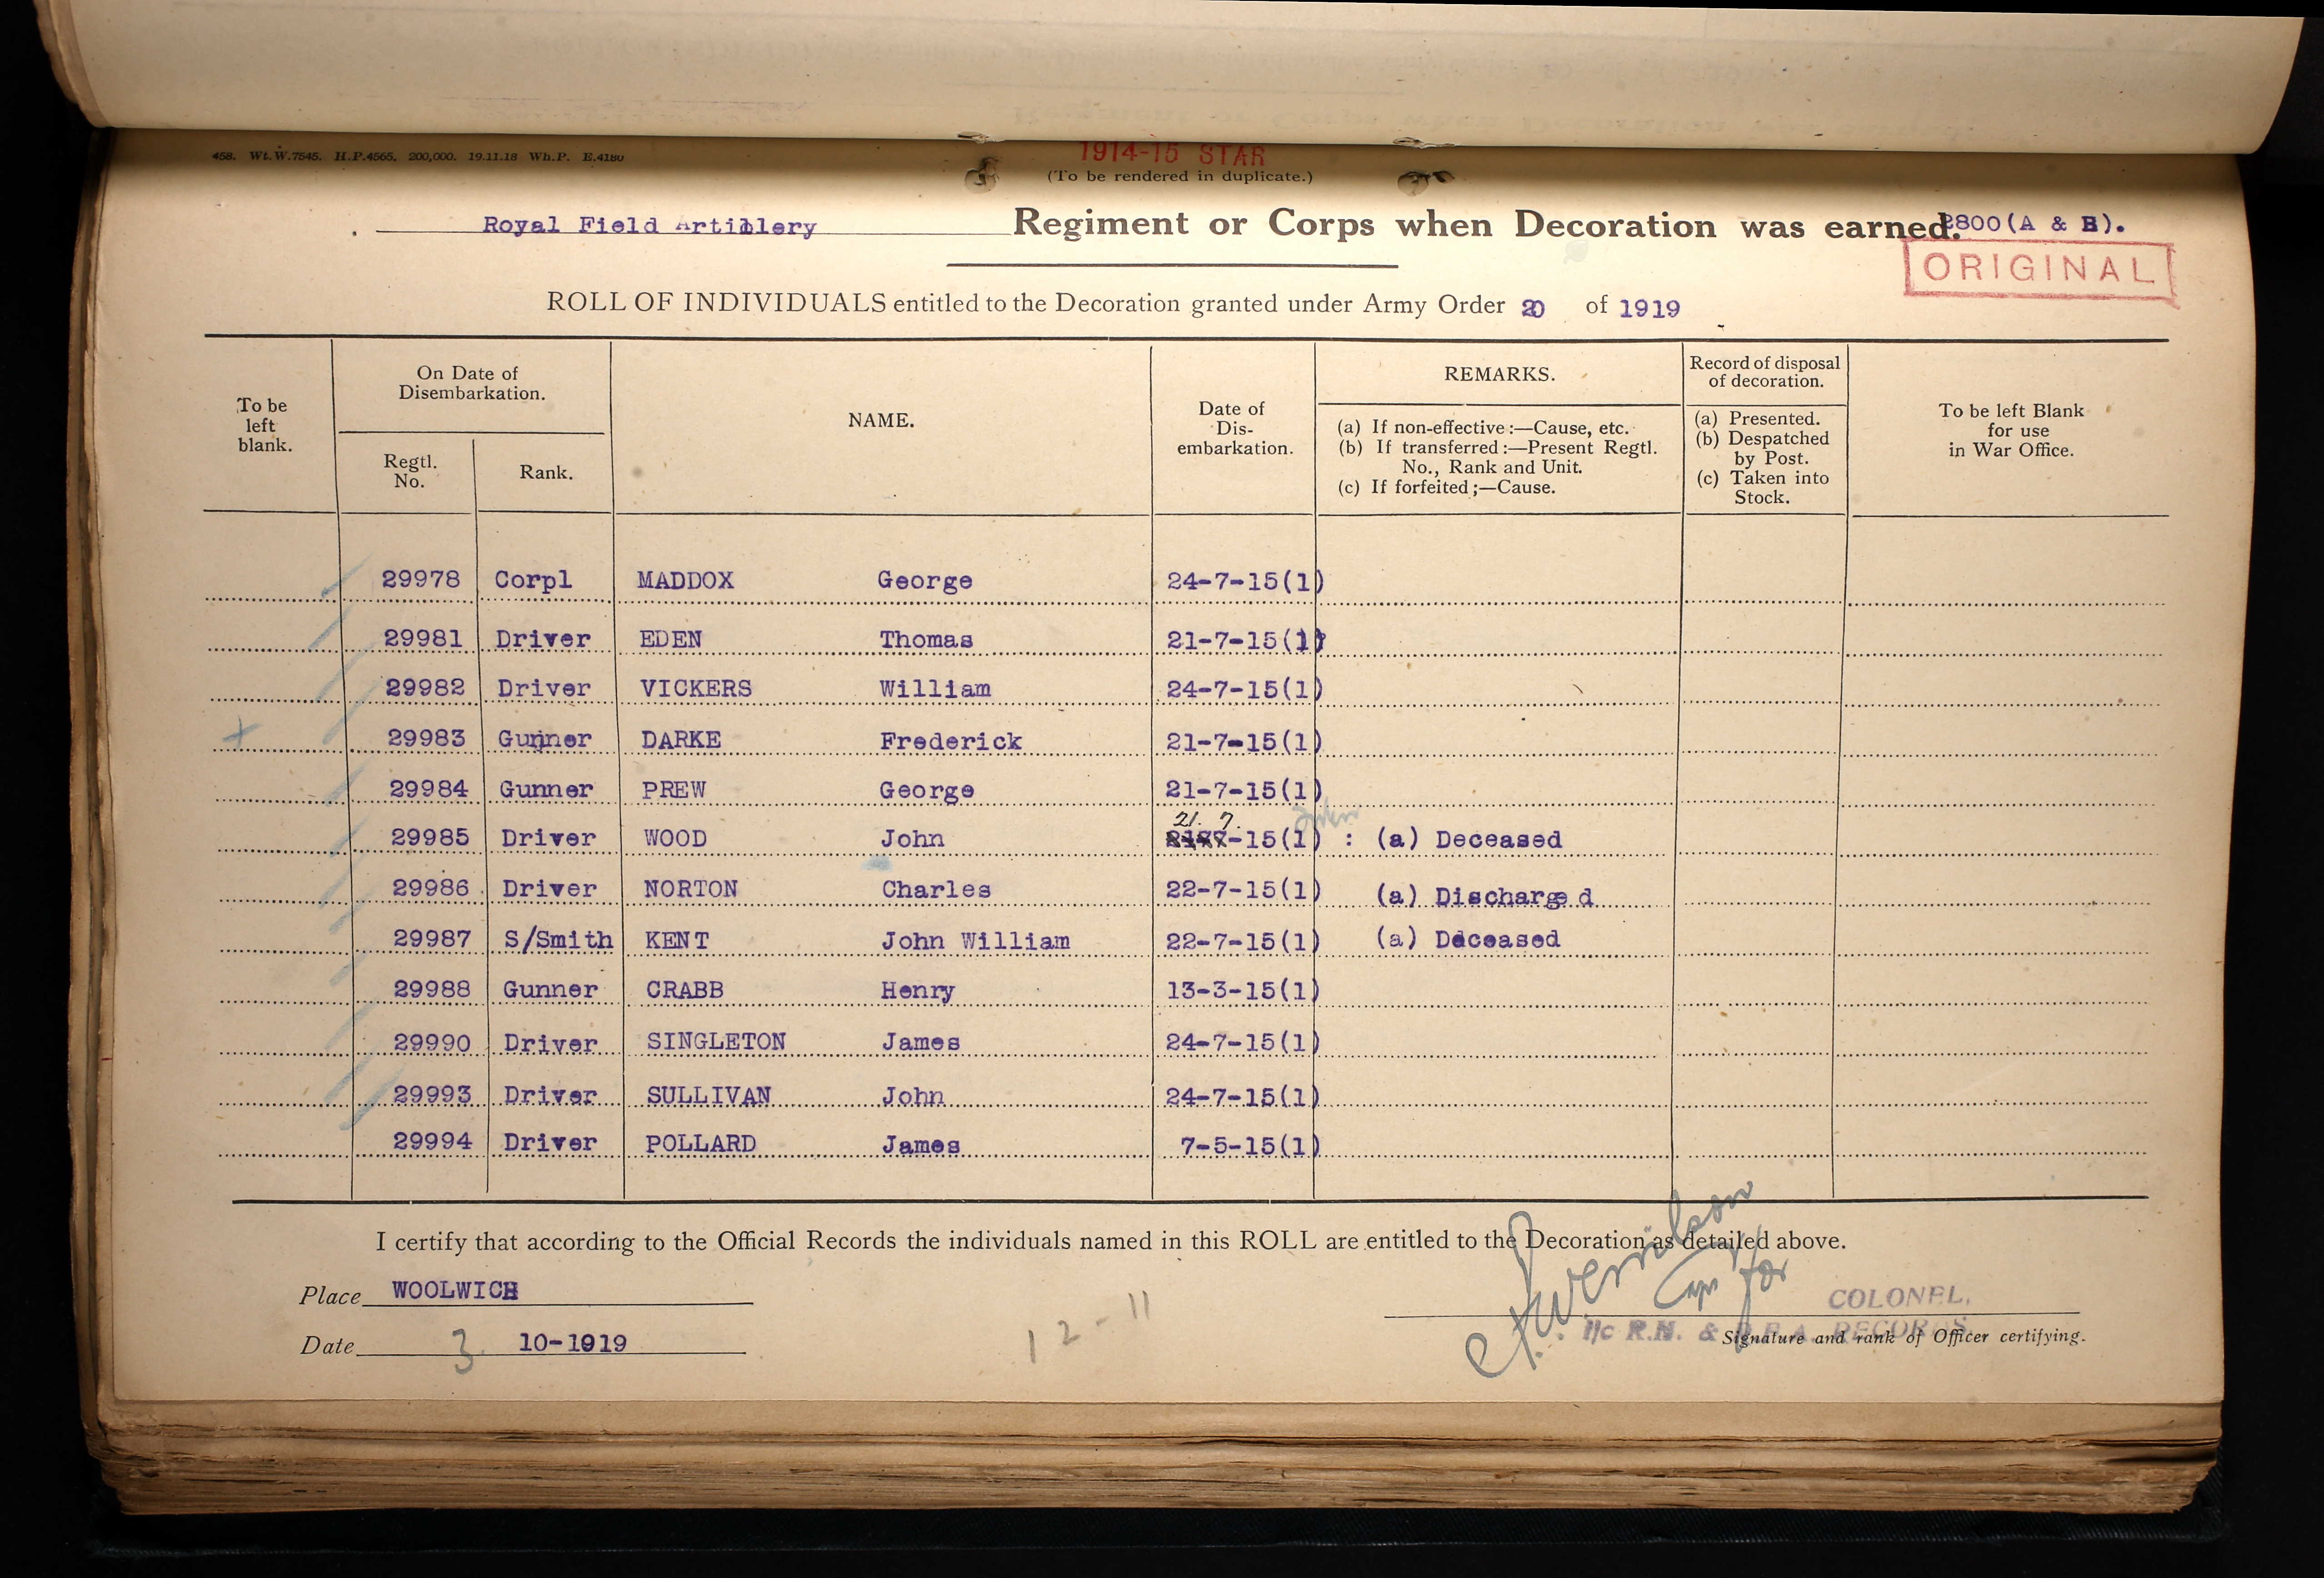 458. Wt.W.7545. H.P.4565. 200,000. 19.11.18 Wh.P. E.4180
1914-15 STAR
(To be rendered in duplicate.)
Royal Field Artillery Regiment or Corps when Decoration was earned. 2800(A & B).
ORIGINAL
ROLL OF INDIVIDUALS entitled to the Decoration granted under Army Order 20 of 1919
To be left blank.
On Date of Disembarkation.
Regtl. No.
Rank.
NAME.
Date of Dis-embarkation.
REMARKS.
(a) If non-effective:—Cause, etc.
(b) If transferred:—Present Regtl. No., Rank and Unit.
(c) If forfeited;—Cause.
Record of disposal of decoration.
(a) Presented.
(b) Despatched by Post.
(c) Taken into Stock.
To be left Blank for use in War Office.
29978 Corpl MADDOX George 24-7-15(1)
29981 Driver EDEN Thomas 21-7-15(1)
29982 Driver VICKERS William 24-7-15(1)
+ 29983 Gunner DARKE Frederick 21-7-15(1)
29984 Gunner PREW George 21-7-15(1)
21. 7.
29985 Driver WOOD John -15(1) : (a) Deceased
29986 Driver NORTON Charles 22-7-15(1) (a) Discharged
29987 S/Smith KENT John William 22-7-15(1) (a) Deceased
29988 Gunner CRABB Henry 13-3-15(1)
29990 Driver SINGLETON James 24-7-15(1)
29993 Driver SULLIVAN John 24-7-15(1)
29994 Driver POLLARD James 7-5-15(1)
I certify that according to the Official Records the individuals named in this ROLL are entitled to the Decoration as detailed above.
Place WOOLWICH
Date 3 10-1919
12-11
Cap for
COLONEL,
i/c R.H. & R.F.A. RECORDS
Signature and rank of Officer certifying.